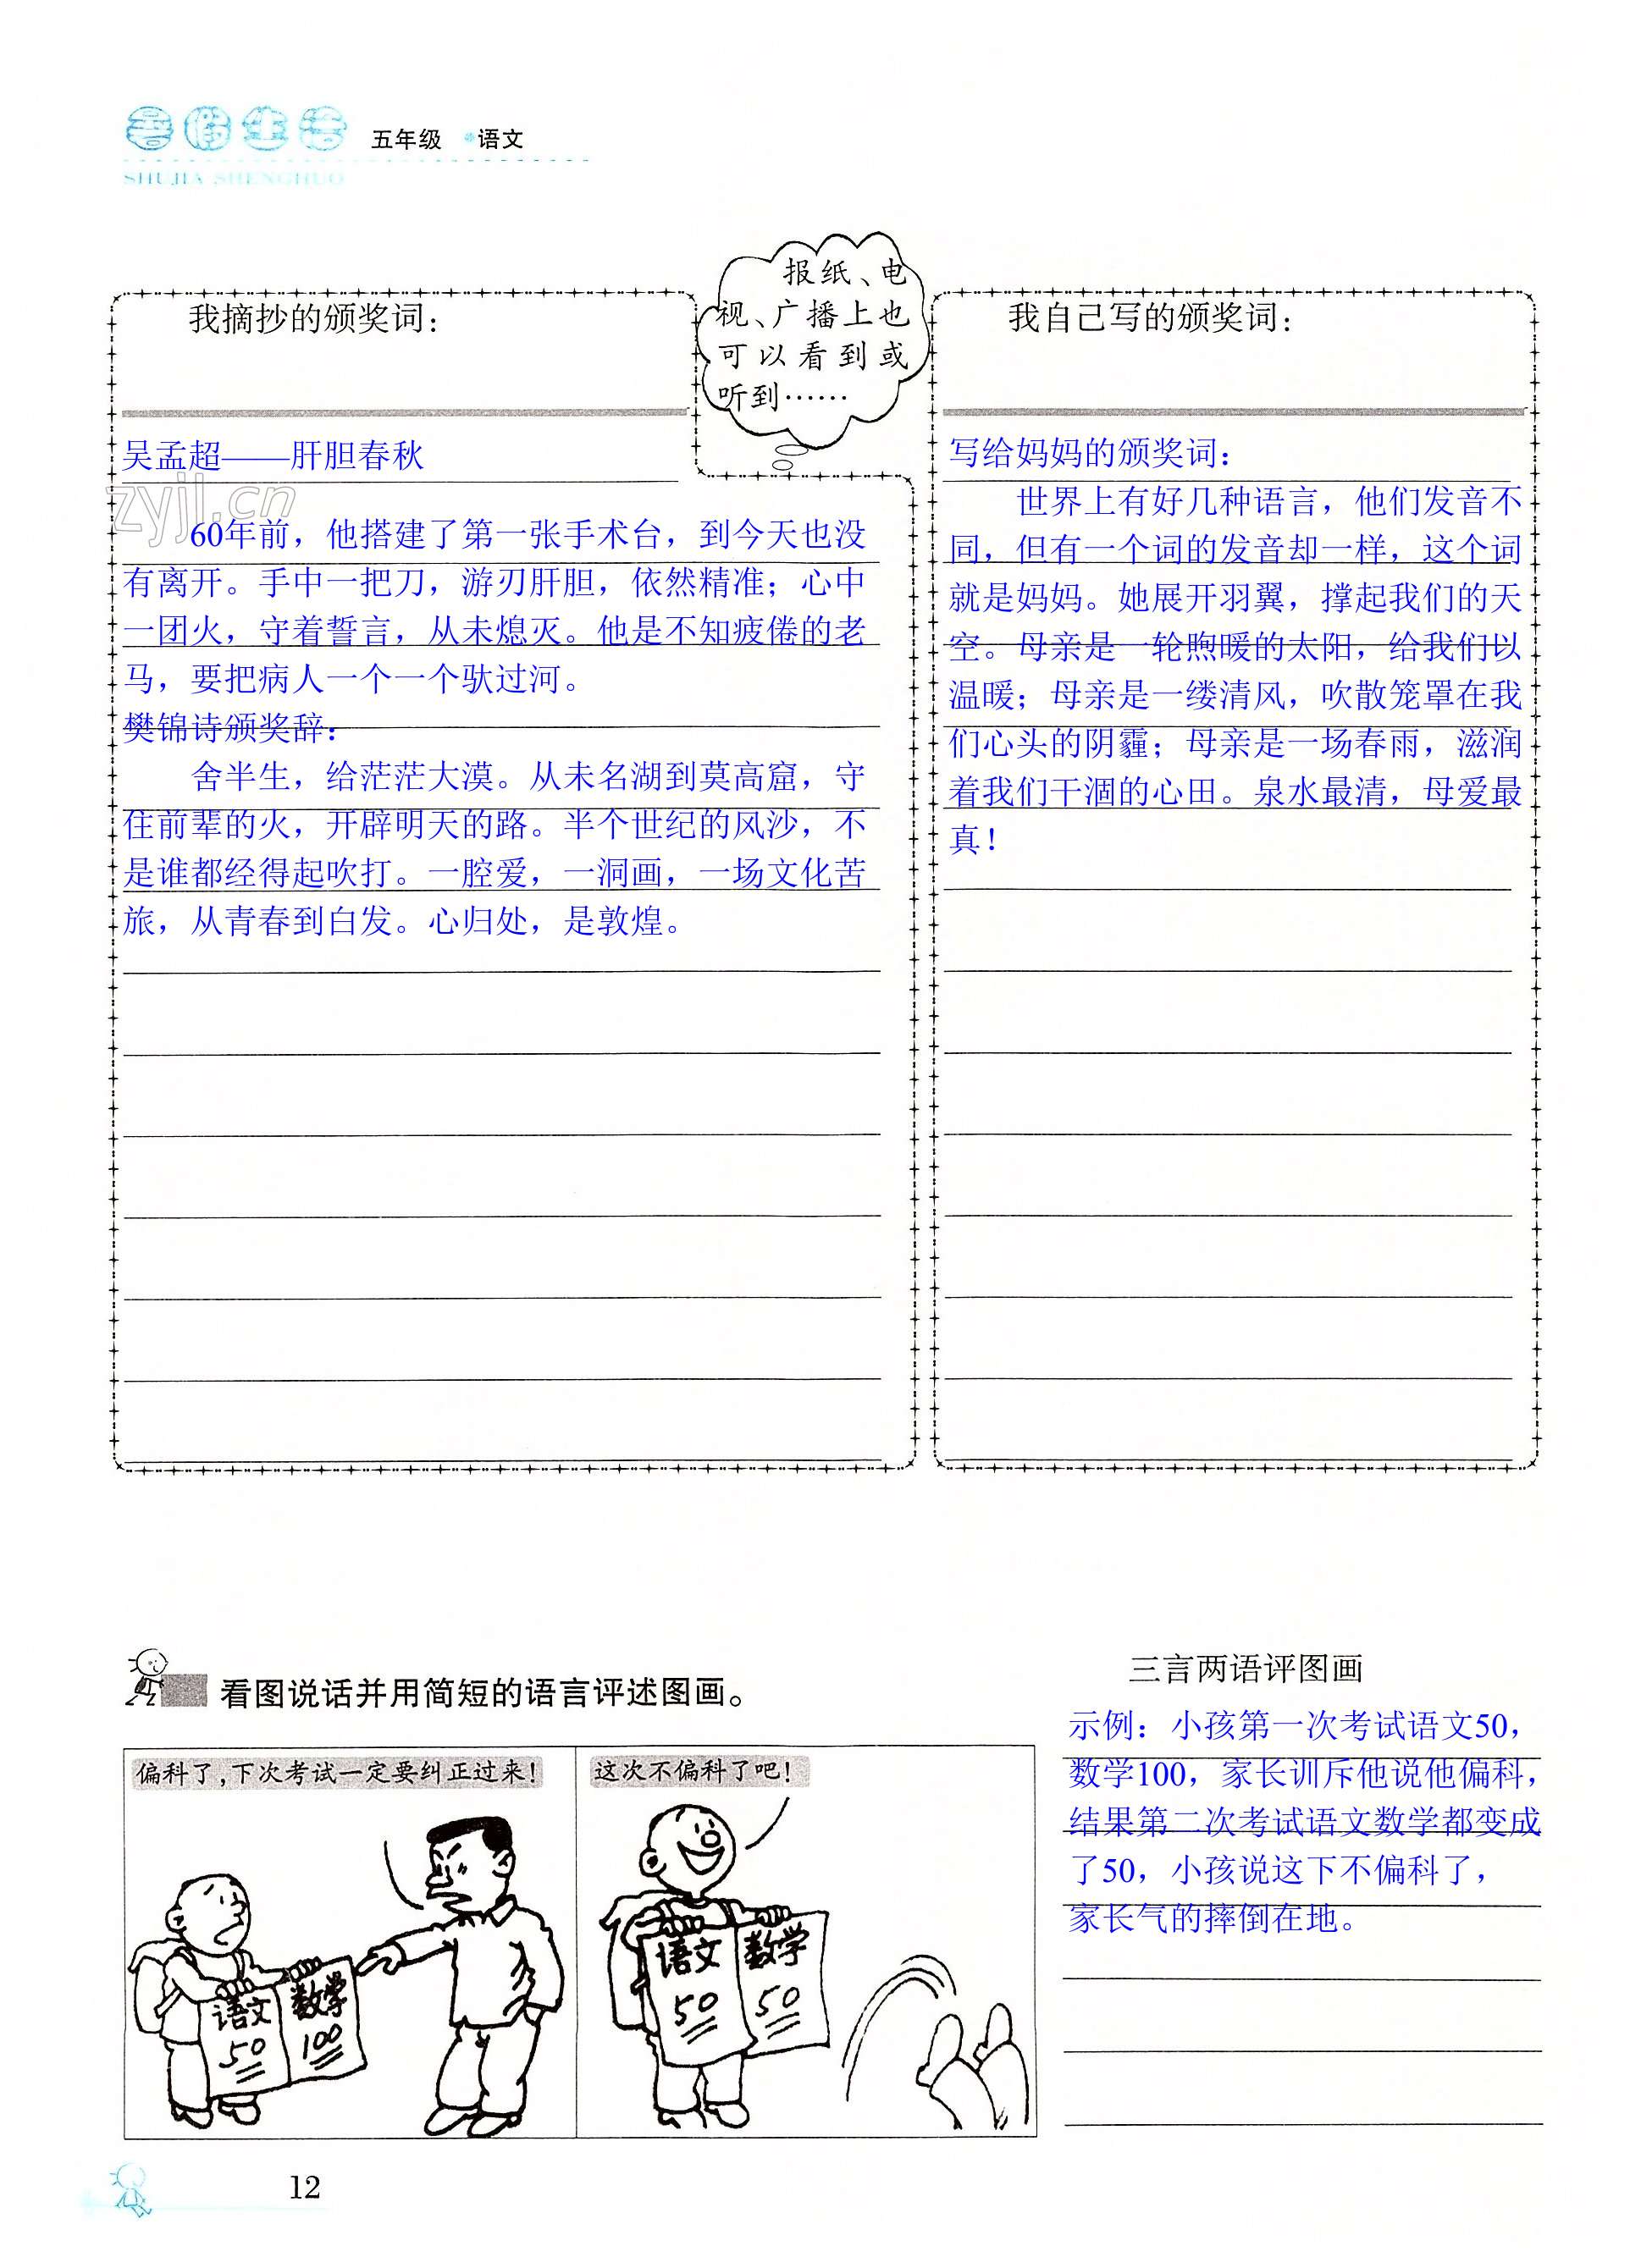 暑假生活 五年级 语文
SHUJIA SHENGHUO
报纸、电
视、广播上也
可以看到或
听到……
我摘抄的颁奖词：
吴孟超——肝胆春秋
zyjl.cn
60年前，他搭建了第一张手术台，到今天也没
有离开。手中一把刀，游刃肝胆，依然精准；心中
一团火，守着誓言，从未熄灭。他是不知疲倦的老
马，要把病人一个一个驮过河。
樊锦诗颁奖辞：
舍半生，给茫茫大漠。从未名湖到莫高窟，守
住前辈的火，开辟明天的路。半个世纪的风沙，不
是谁都经得起吹打。一腔爱，一洞画，一场文化苦
旅，从青春到白发。心归处，是敦煌。
我自己写的颁奖词：
写给妈妈的颁奖词：
世界上有好几种语言，他们发音不
同，但有一个词的发音却一样，这个词
就是妈妈。她展开羽翼，撑起我们的天
空。母亲是一轮煦暖的太阳，给我们以
温暖；母亲是一缕清风，吹散笼罩在我
们心头的阴霾；母亲是一场春雨，滋润
着我们干涸的心田。泉水最清，母爱最
真！
看图说话并用简短的语言评述图画。
偏科了，下次考试一定要纠正过来！
语文
50
数学
100
这次不偏科了吧！
语文
50
数学
50
三言两语评图画
示例：小孩第一次考试语文50，
数学100，家长训斥他说他偏科，
结果第二次考试语文数学都变成
了50，小孩说这下不偏科了，
家长气的摔倒在地。
12